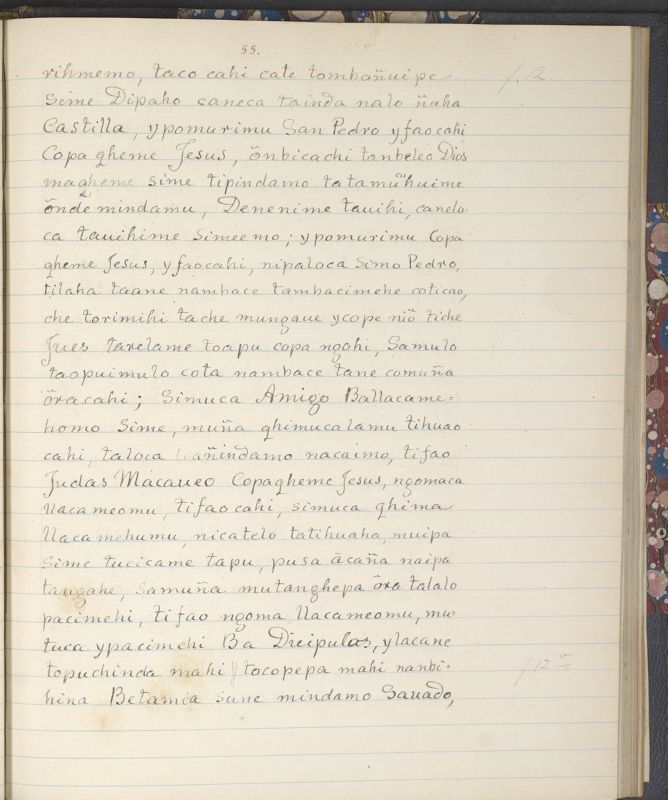 55.
rihmemo, taco cahi cate tombañuipe
f. 12.
sime Dipaho caneca tainda nalo ñaha
Castilla, ypomurimu San Pedro yfaocahi
Copa gheme Jesus, önbicachi tanbeleo Dios
magheme sime tipindamo tatamühuime
önde mindamu, Denenime tauihi, canelo=
ca tauihime simeemo; ypomurimu Copa
gheme Jesus, yfaocahi, nipaloca Simo Pedro,
tilaha taane nambace tambacimehe coticao,
che torimihi tache mungaue ycope niö tiche
Jues tarelame toapu copa ngohi, Samulo
taopuimulo cota nambace tane comuña
öracahi; Simuca Amigo Ballacame=
homo Sime, muña ghimucalamu tihuao
cahi, taloca añindamo nacaimo, tifao
Judas Macaueo Copagheme Jesus, ngomaca
llacameomu, tifao cahi, simuca ghima
llacamehumu, nicatelo tatihuaha, muipa
sime tucicame tapu, pusa äcaña naipa
taugahe, Samuña mutanghepa öra talalo
pacimehi, tifao ngoma llacameomu, mu=
tuca ypacimehi Ba Dicipulas, ylacane
topuchinda mahi || tocopepa mahi nanbi=
f. 12 v
hina Betamia sune mindamo Sauado,